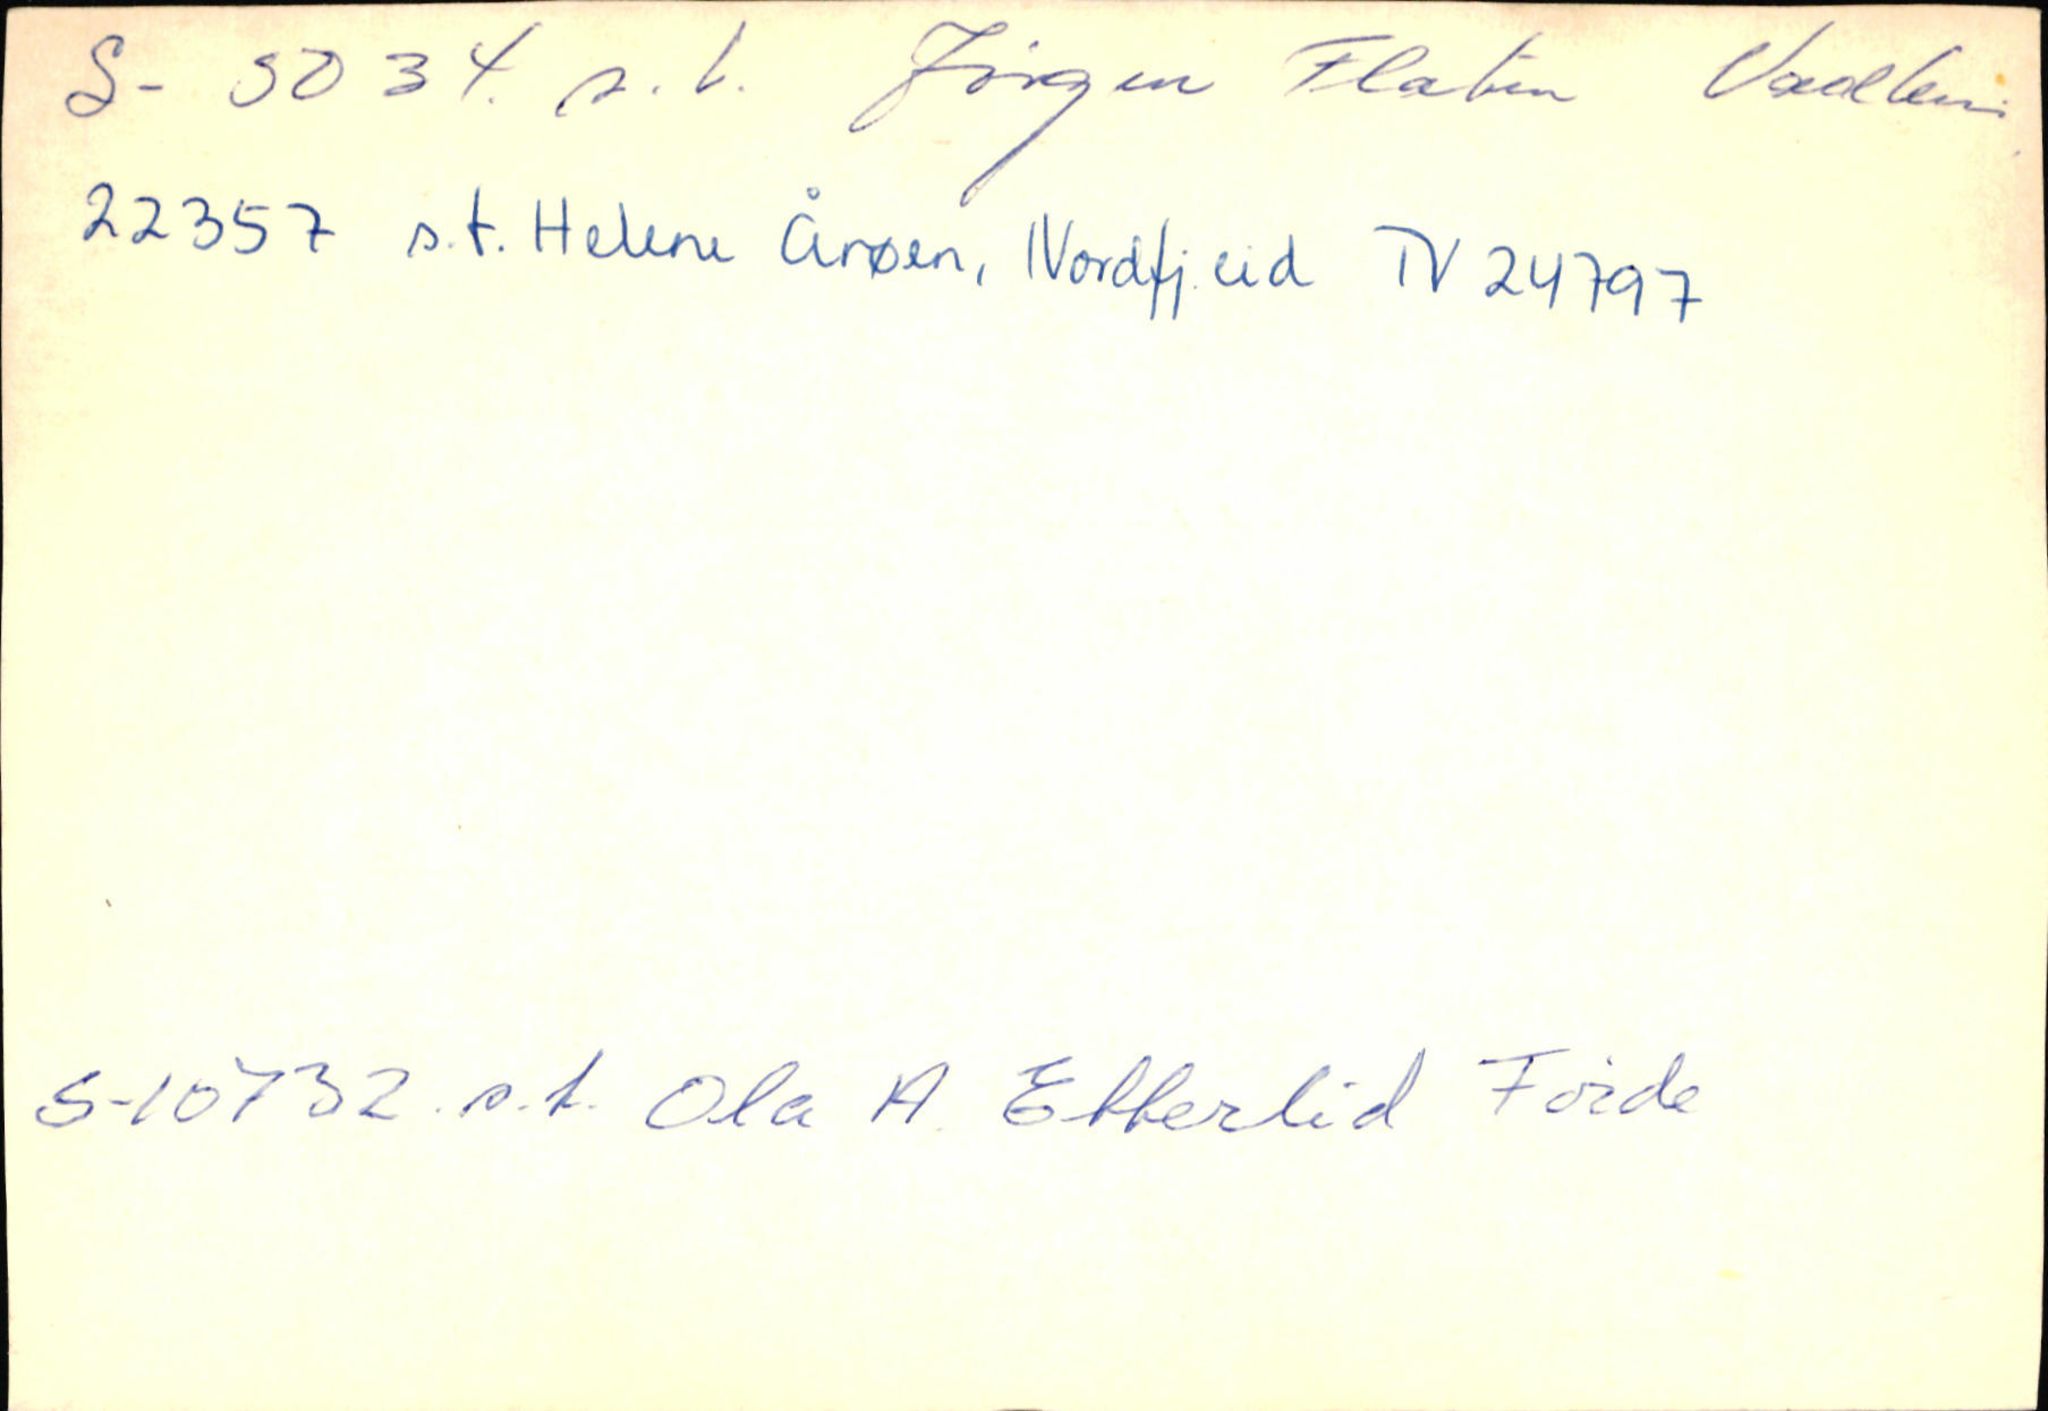 S- 5034. s.t. Jörgen Flaten Vadheim
22357 s.t. Helene Årøen, Nordfj.eid TV 24797
S-10732 s.t. Ola A. Efterlid Förde